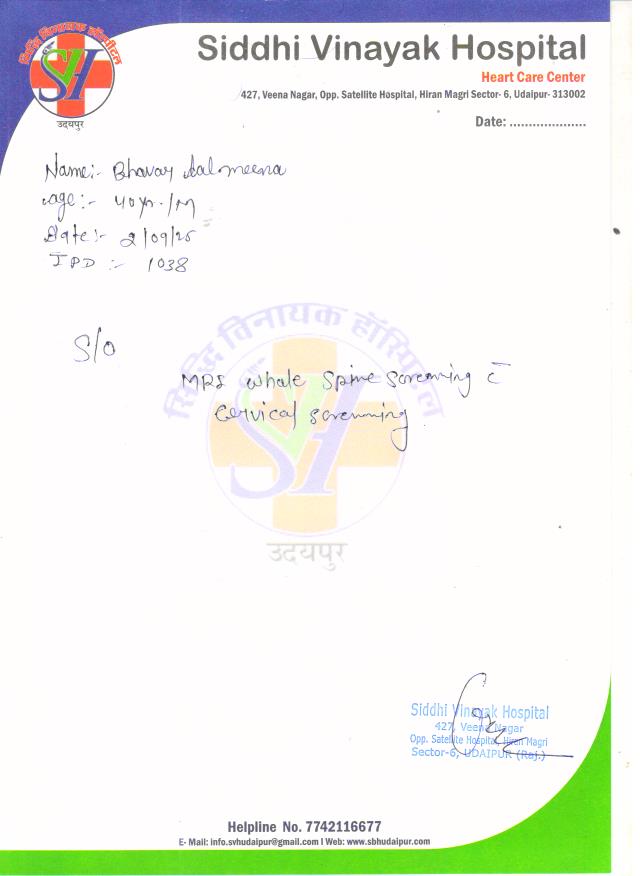 सिद्धि विनायक हॉस्पीटल
SVH
उदयपुर
Siddhi Vinayak Hospital
Heart Care Center
427, Veena Nagar, Opp. Satellite Hospital, Hiran Magri Sector- 6, Udaipur- 313002
Date: ....................
Name:- Bhavar Lal meena
Age:- 40 yr. /M
Date:- 2/09/25
IPD :- 1038
सिद्धि विनायक हॉस्पिटल
S/O
MRI whale Spine Screaning c̄
Cervical screnning
SVH
उदयपुर
Siddhi Vinayak Hospital
427, Veena Nagar
Opp. Satellite Hospital, Hiran Magri
Sector-6, UDAIPUR (Raj.)
Helpline No. 7742116677
E- Mail: info.svhudaipur@gmail.com I Web: www.sbhudaipur.com